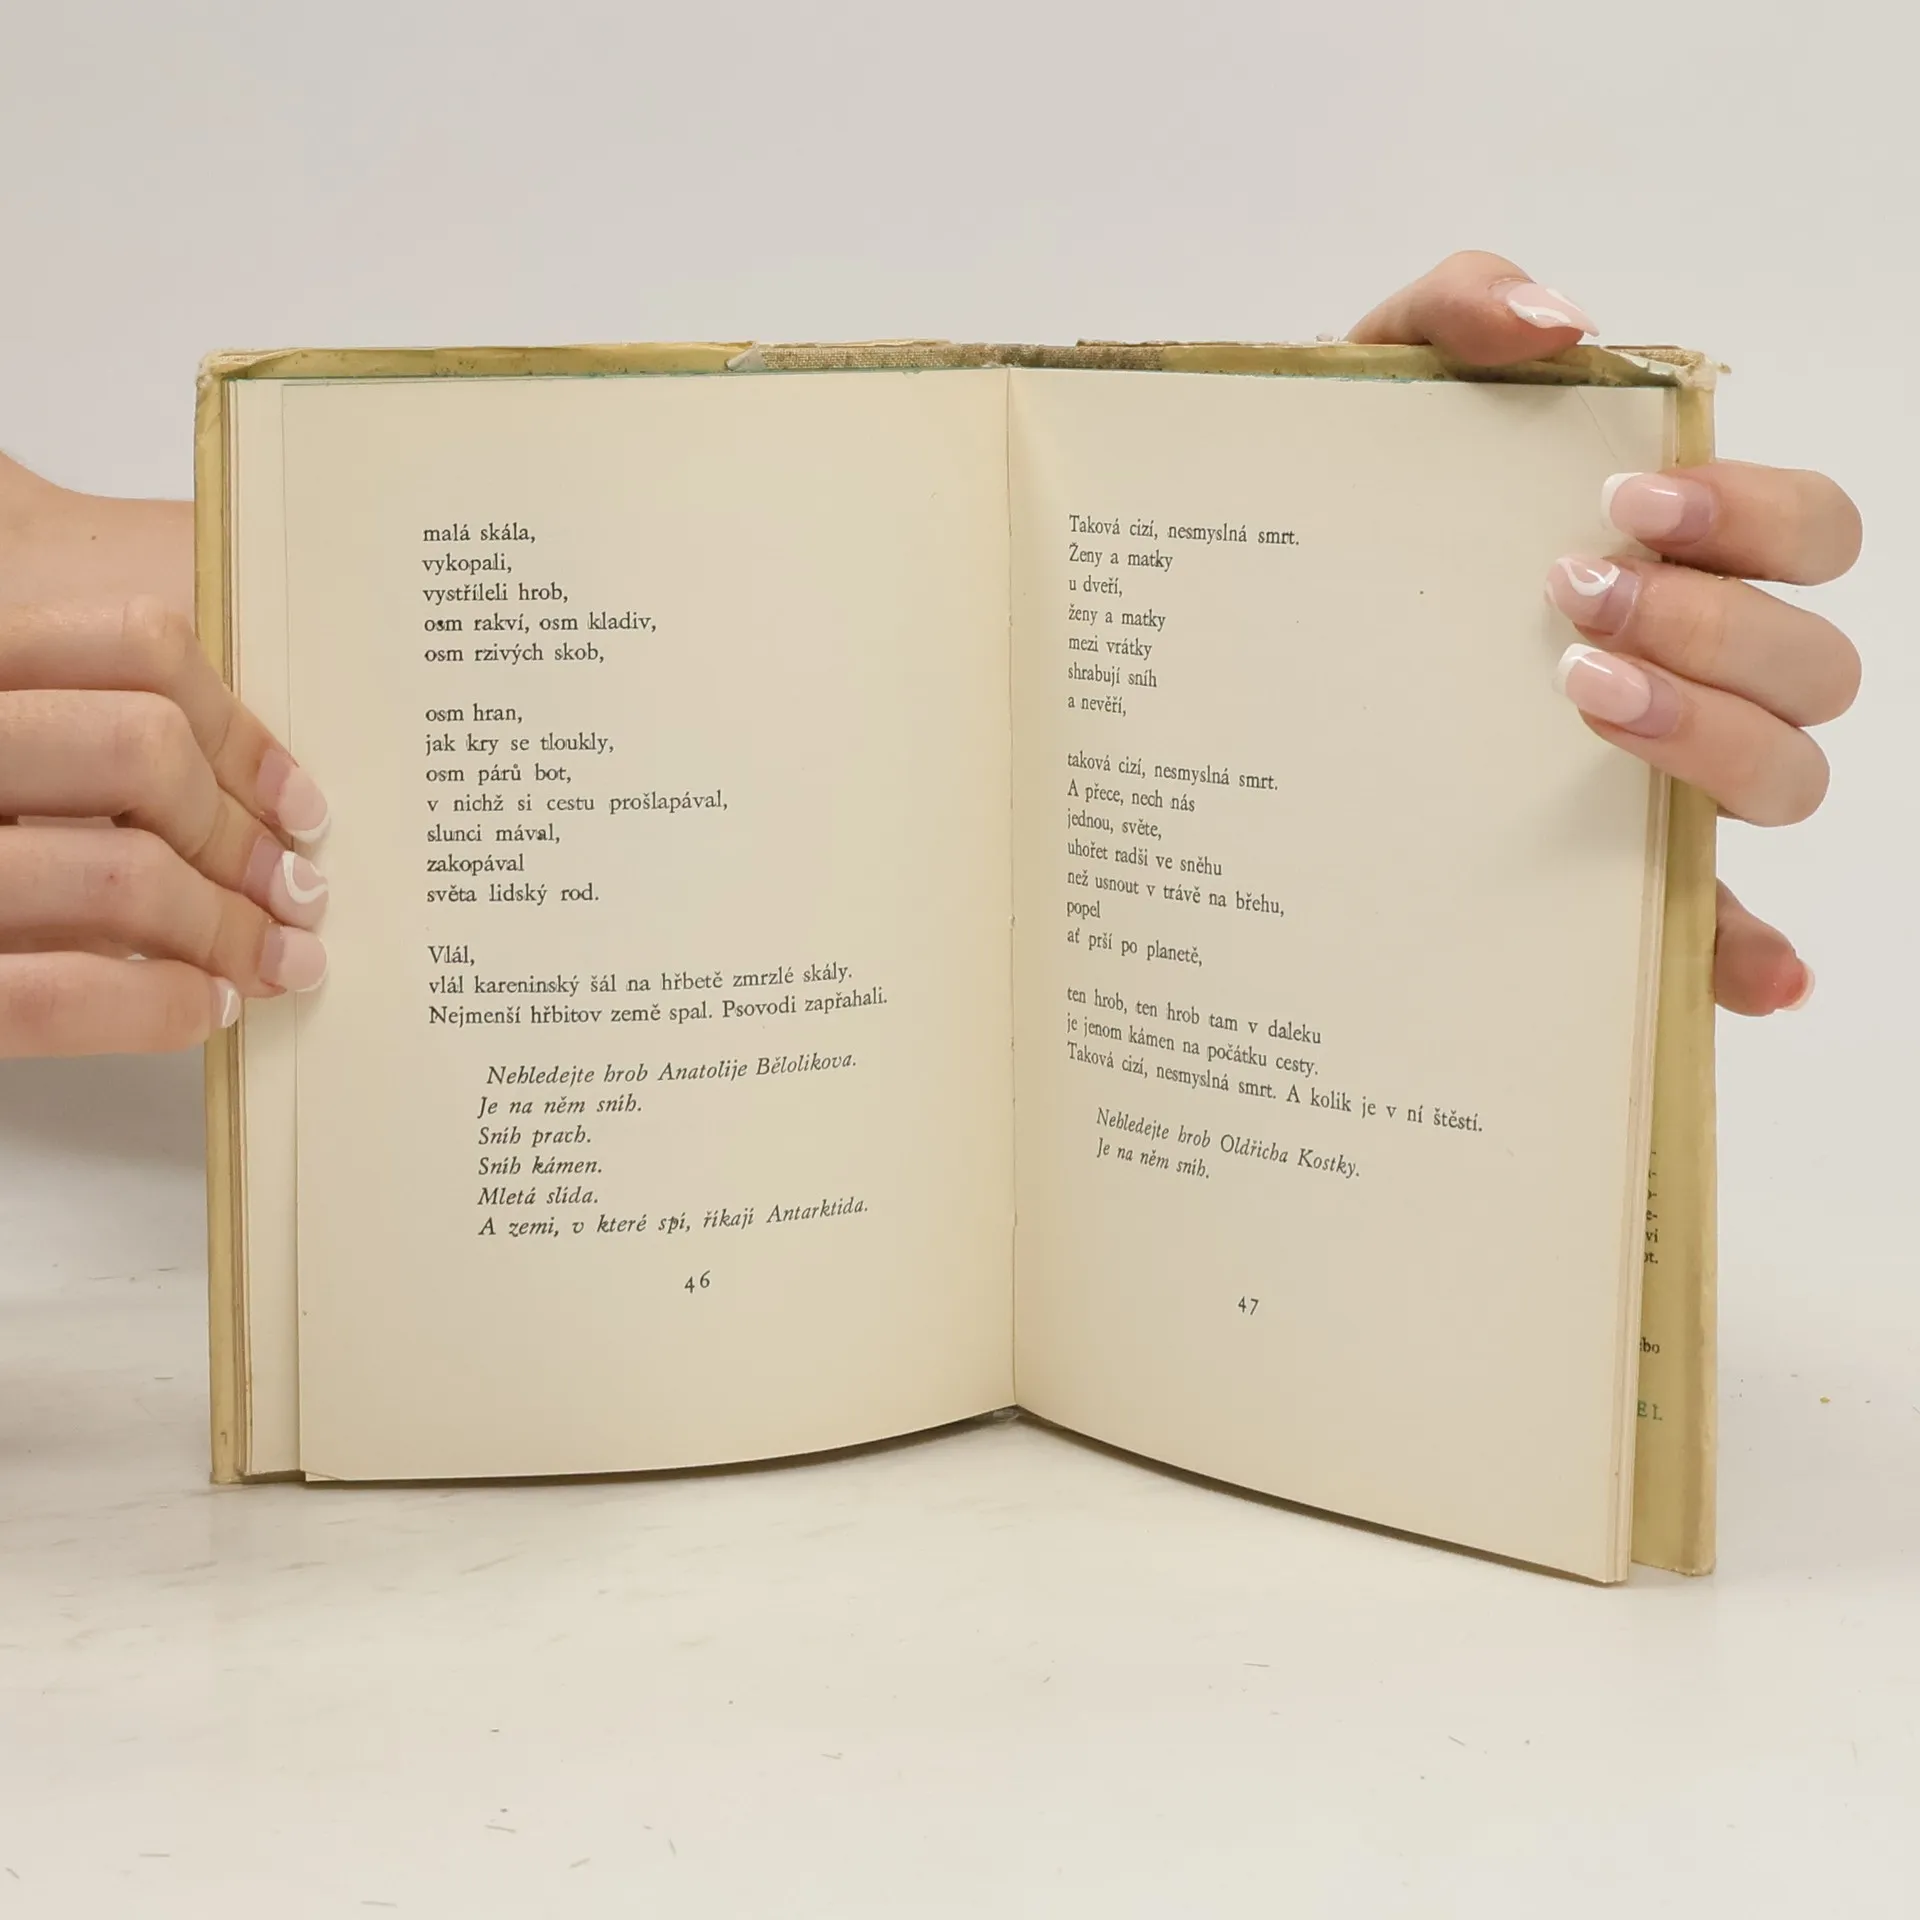 malá skála,
vykopali,
vystříleli hrob,
osm rakví, osm kladiv,
osm rzivých skob,
osm hran,
jak kry se tloukly,
osm párů bot,
v nichž si cestu prošlapával,
slunci mával,
zakopával
světa lidský rod.
Vlál,
vlál kareninský šál na hřbetě zmrzlé skály.
Nejmenší hřbitov země spal. Psovodi zapřahali.
Nehledejte hrob Anatolije Bělolikova.
Je na něm sníh.
Sníh prach.
Sníh kámen.
Mletá slída.
A zemi, v které spí, říkají Antarktida.
46
Taková cizí, nesmyslná smrt.
Ženy a matky
u dveří,
ženy a matky
mezi vrátky
shrabují sníh
a nevěří,
taková cizí, nesmyslná smrt.
A přece, nech nás
jednou, světe,
uhořet radši ve sněhu
než usnout v trávě na břehu,
popel
ať prší po planetě,
ten hrob, ten hrob tam v daleku
je jenom kámen na počátku cesty.
Taková cizí, nesmyslná smrt. A kolik je v ní štěstí.
Nehledejte hrob Oldřicha Kostky.
Je na něm sníh.
47